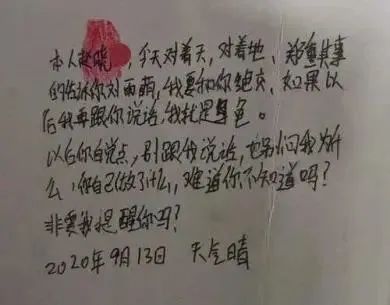 本人赵晓，今天对着天，对着地、郑重其事
的告诉你刘雨萌，我要和你绝交，如果以
后我再跟你说话，我就是
以后你自觉点，别跟我说话，也别问我为什
么，你自己做了什么，难道你不知道吗？
非要我提醒你吗？
2020年9月13日 天气晴